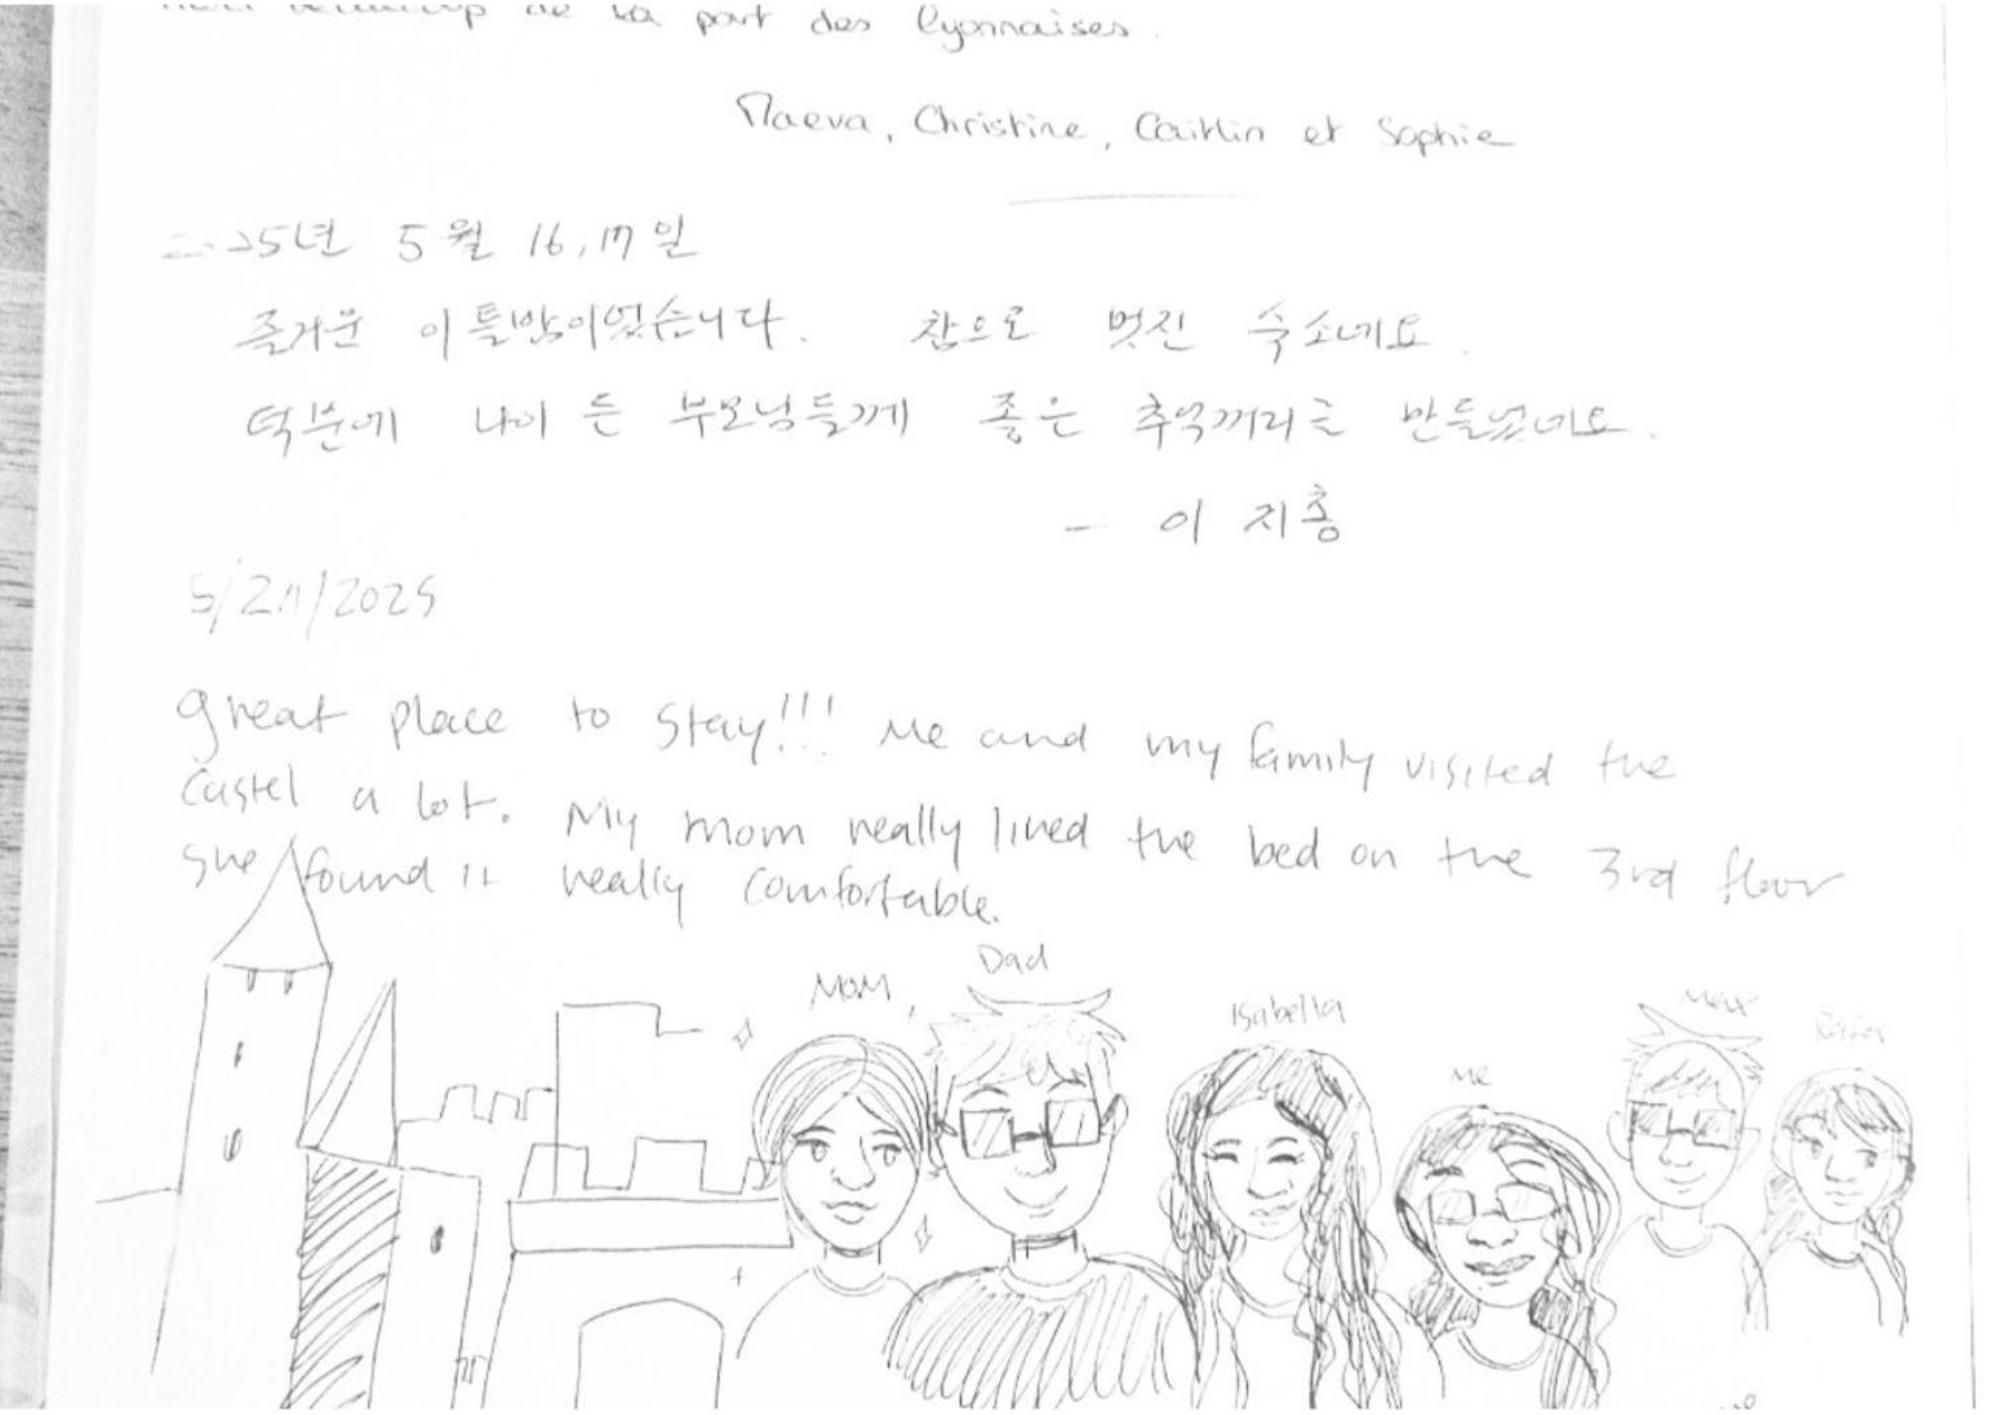 beaucoup de la part des lyonnaises.
Maeva, Christine, Caitlin et Sophie
2025년 5월 16, 17일
즐거운 이틀밤이었습니다. 참으로 멋진 숙소네요.
덕분에 나이 든 부모님들께 좋은 추억꺼리를 만들었네요.
- 이 지홍
5/21/2025
great place to stay!!! Me and my family visited the
Castel a lot. My mom really liked the bed on the 3rd floor
she found it really comfortable.
Mom
Dad
Isabella
Me
Max